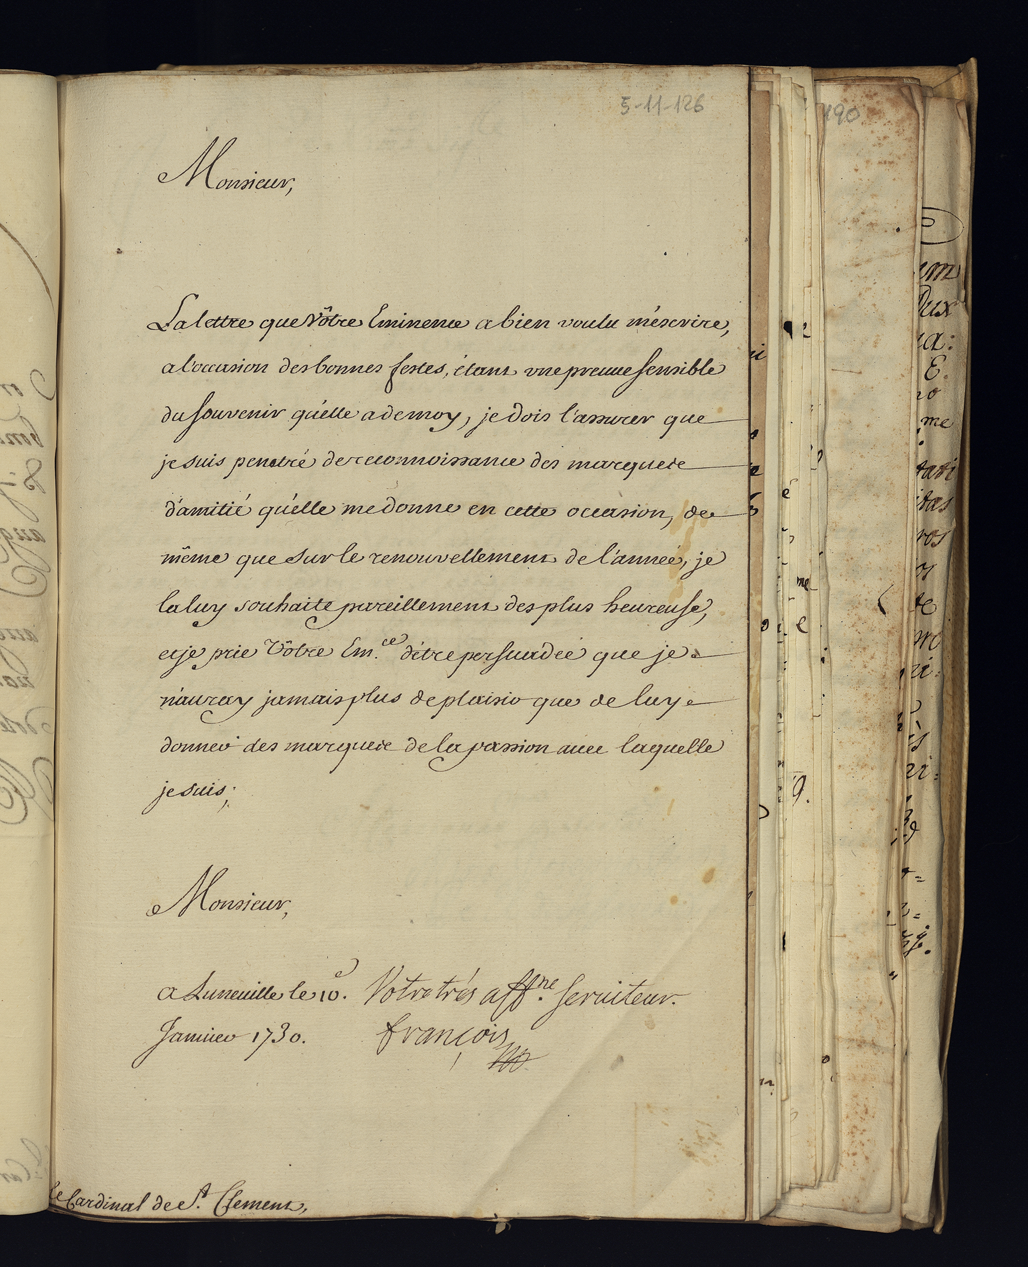 5-11-126
190
Monsieur,
La lettre que Vôtre Eminence a bien voulu m'éscrire,
a l'occasion des bonnes festes, étant une preuue sensible
du souvenir qu'elle a de moy, je dois l'assurer que
je suis penetré de reconnoissance des marques
d'amitié qu'elle me donne en cette occasion, de
même que sur le renouvellement de l'année, je
la luy souhaite pareillement des plus heureuse,
et je prie Vôtre Em.ce d'étre persuadée que je
n'auray jamais plus de plaisir que de luy
donner des marques de la passion auec laquelle
je suis;
Monsieur,
a Luneuille le 10.e
Januier 1730.
Votre trés aff.ne seruiteur.
françois
le Cardinal de St. Clement,